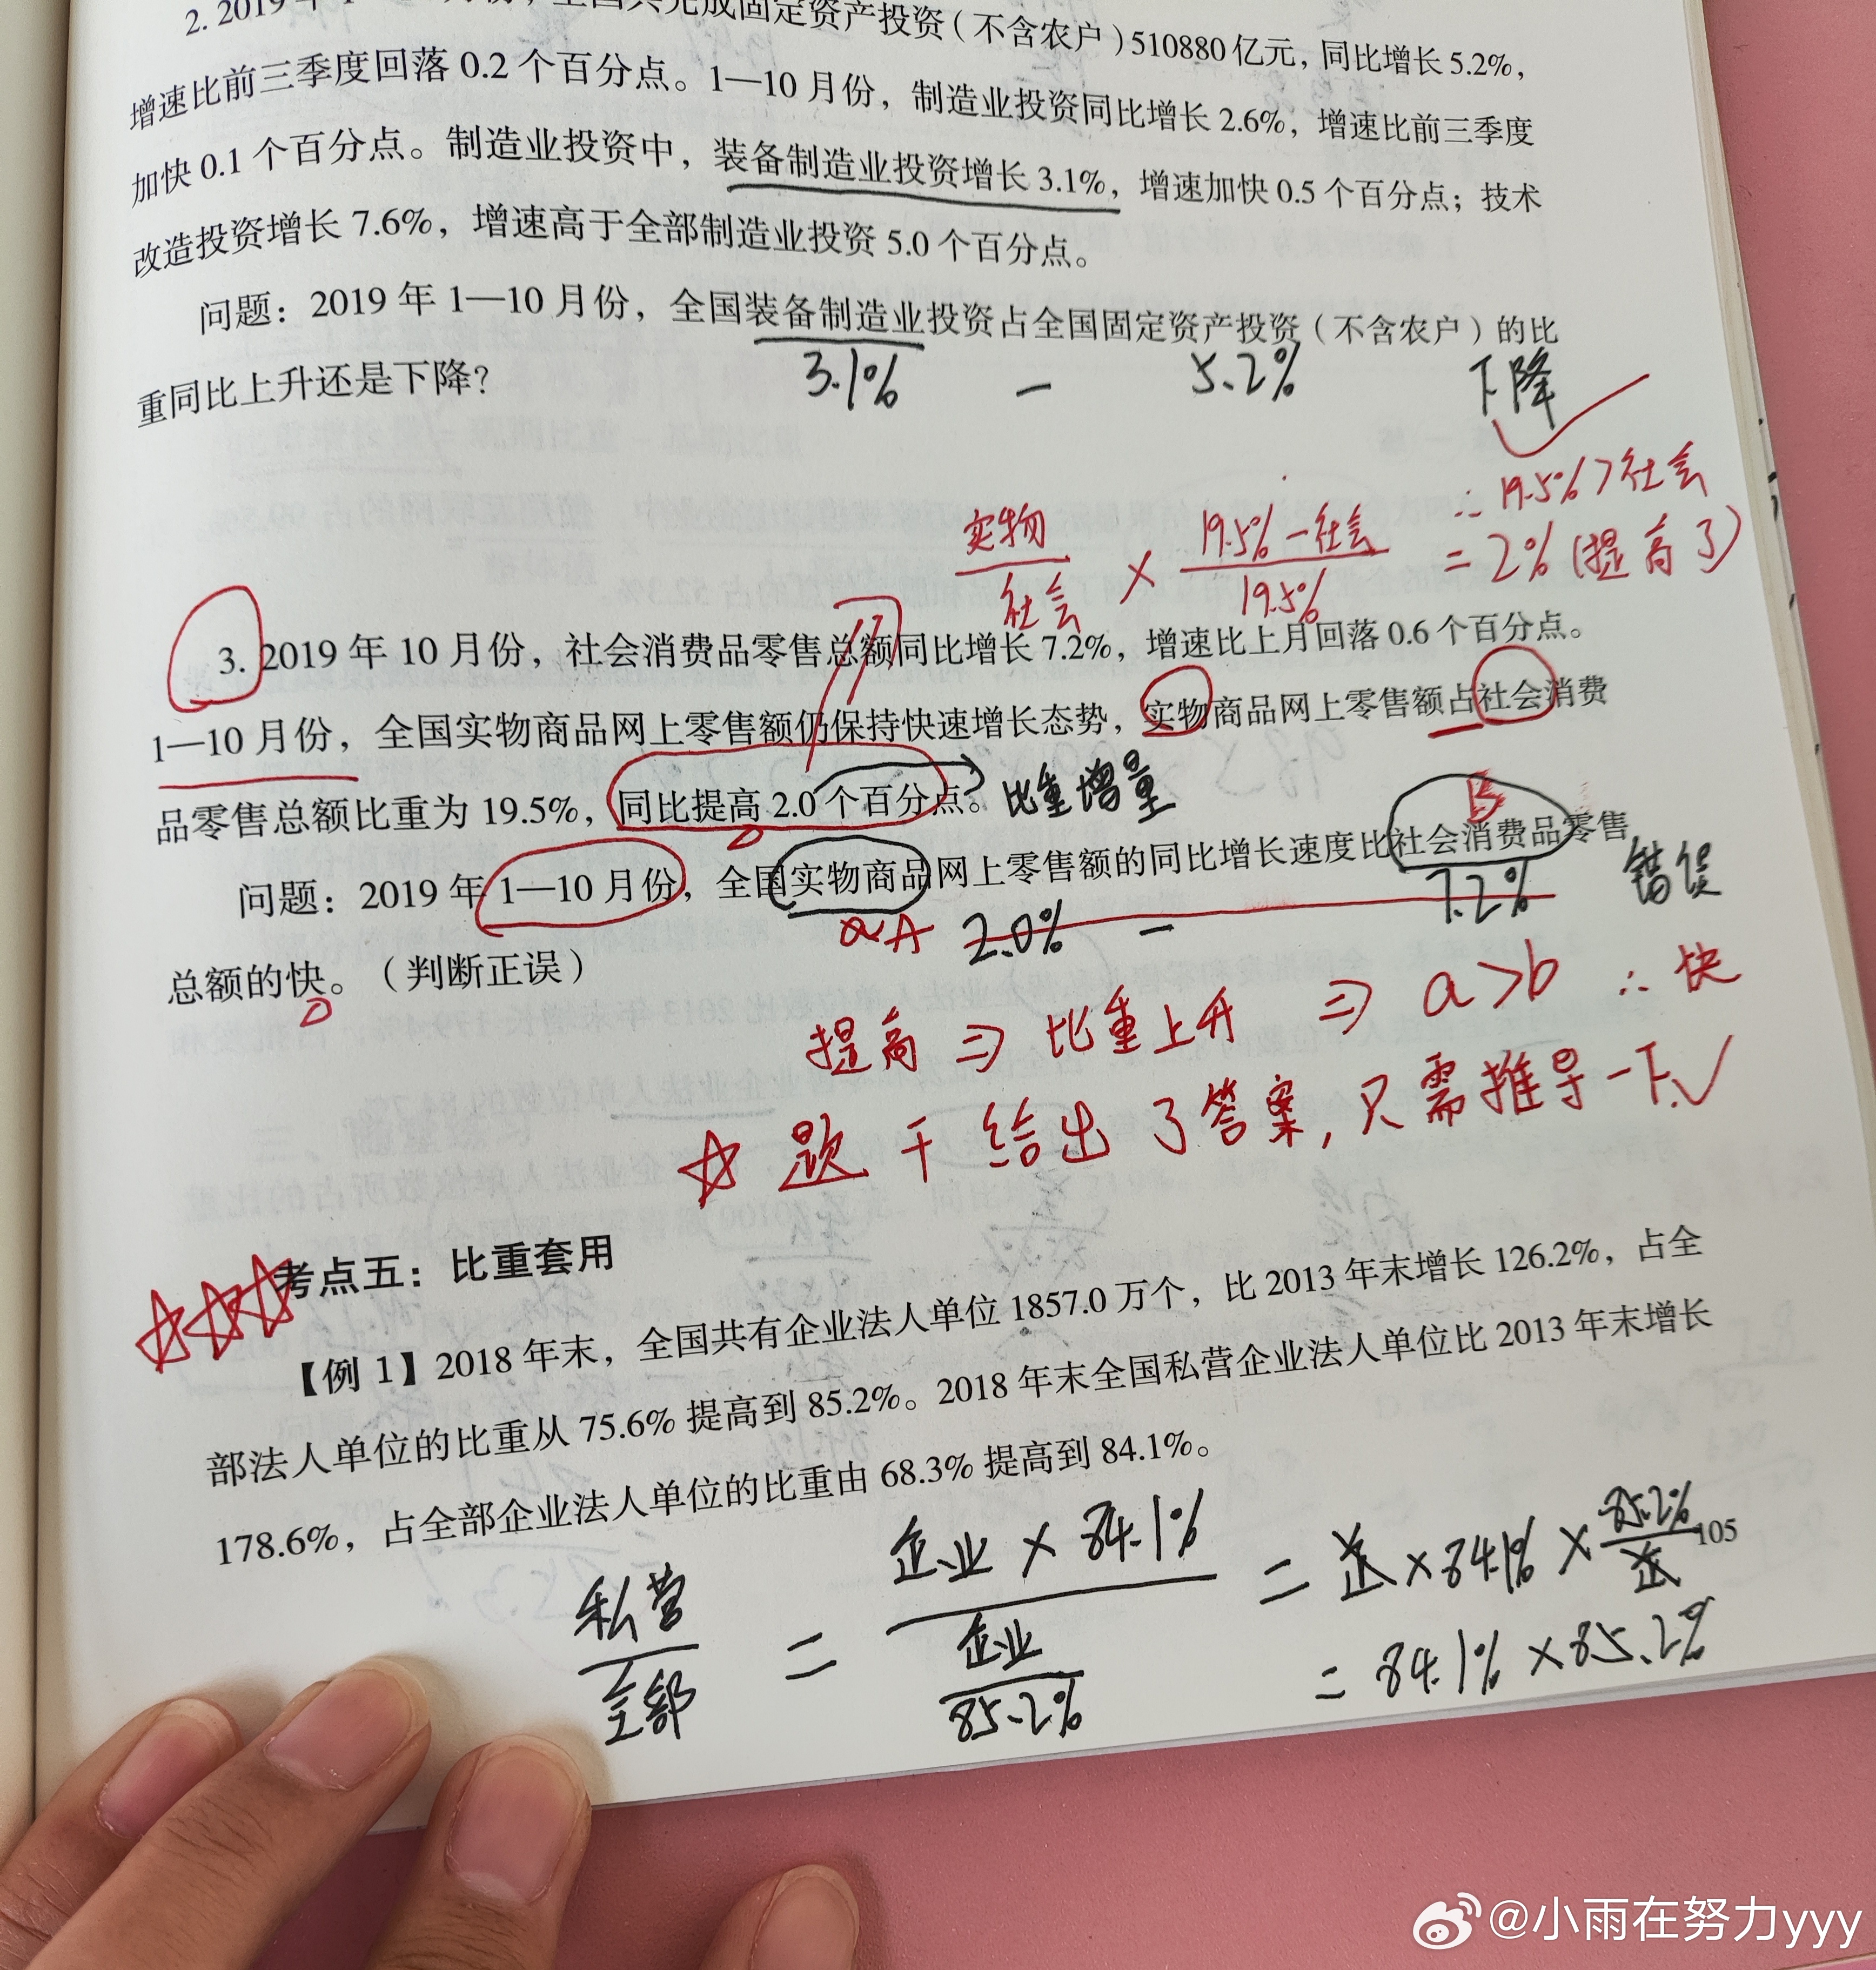 2. 2019年1—10月份，全国共完成固定资产投资（不含农户）510880亿元，同比增长5.2%，
增速比前三季度回落0.2个百分点。1—10月份，制造业投资同比增长2.6%，增速比前三季度
加快0.1个百分点。制造业投资中，装备制造业投资增长3.1%，增速加快0.5个百分点；技术
改造投资增长7.6%，增速高于全部制造业投资5.0个百分点。
问题：2019年1—10月份，全国装备制造业投资占全国固定资产投资（不含农户）的比
重同比上升还是下降？
3.1% － 5.2% 下降
∴19.5%>社会
实物/社会 × 19.5%－社会/19.5% = 2%(提高了)
3. 2019年10月份，社会消费品零售总额同比增长7.2%，增速比上月回落0.6个百分点。
1—10月份，全国实物商品网上零售额仍保持快速增长态势，实物商品网上零售额占社会消费
品零售总额比重为19.5%，同比提高2.0个百分点。 比重增量
B
问题：2019年1—10月份，全国实物商品网上零售额的同比增长速度比社会消费品零售
A 2.0% － 7.2% 错误
总额的快。（判断正误）
提高⇒比重上升 ⇒ a>b ∴快
☆题干给出了答案,只需推导一下✓
☆☆☆考点五：比重套用
【例1】2018年末，全国共有企业法人单位1857.0万个，比2013年末增长126.2%，占全
部法人单位的比重从75.6%提高到85.2%。2018年末全国私营企业法人单位比2013年末增长
178.6%，占全部企业法人单位的比重由68.3%提高到84.1%。
105
私营/全部 = 企业×84.1%/企业/85.2% = 企×84.1%×85.2%/企
= 84.1%×85.2%
@小雨在努力yyy